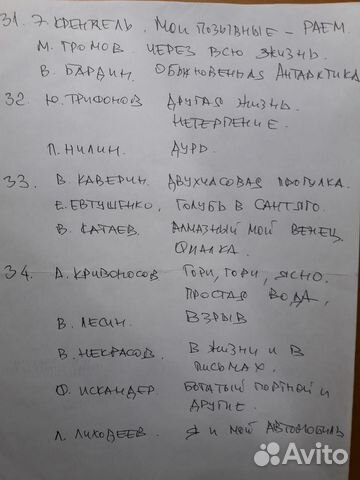 31. Э. КРЕНКЕЛЬ. МОИ ПОЗЫВНЫЕ – РАЕМ.
М. ГРОМОВ. ЧЕРЕЗ ВСЮ ЖИЗНЬ.
В. БАРДИН. ОБЫКНОВЕННАЯ АНТАРКТИКА
32. Ю. ТРИФОНОВ ДРУГАЯ ЖИЗНЬ.
НЕТЕРПЕНИЕ.
П. НИЛИН. ДУРЬ.
33. В. КАВЕРИН. ДВУХЧАСОВАЯ ПРОГУЛКА.
Е. ЕВТУШЕНКО. ГОЛУБЬ В САНТЯГО.
В. КАТАЕВ. АЛМАЗНЫЙ МОЙ ВЕНЕЦ.
ФИАЛКА.
34. А. КРИВОНОСОВ ГОРИ, ГОРИ, ЯСНО.
ПРОСТАЯ ВОДА,
В. ЛЕСИН. ВЗРЫВ
В. НЕКРАСОВ. В ЖИЗНИ И В
ПИСЬМАХ.
Ф. ИСКАНДЕР. БОГАТЫЙ ПОРТНОЙ И
ДРУГИЕ.
Л. ЛИХОДЕЕВ. Я И МОЙ АВТОМОБИЛЬ
Avito